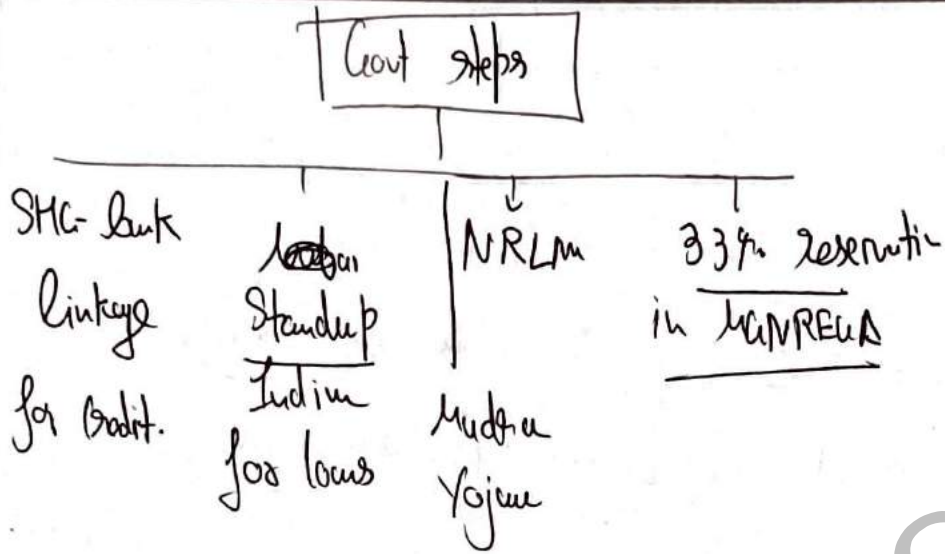 Govt steps
SHG-bank
linkage
for Credit.
Standup
India
for loans
NRLM
Mudra
Yojana
33% reservation
in MGNREGA